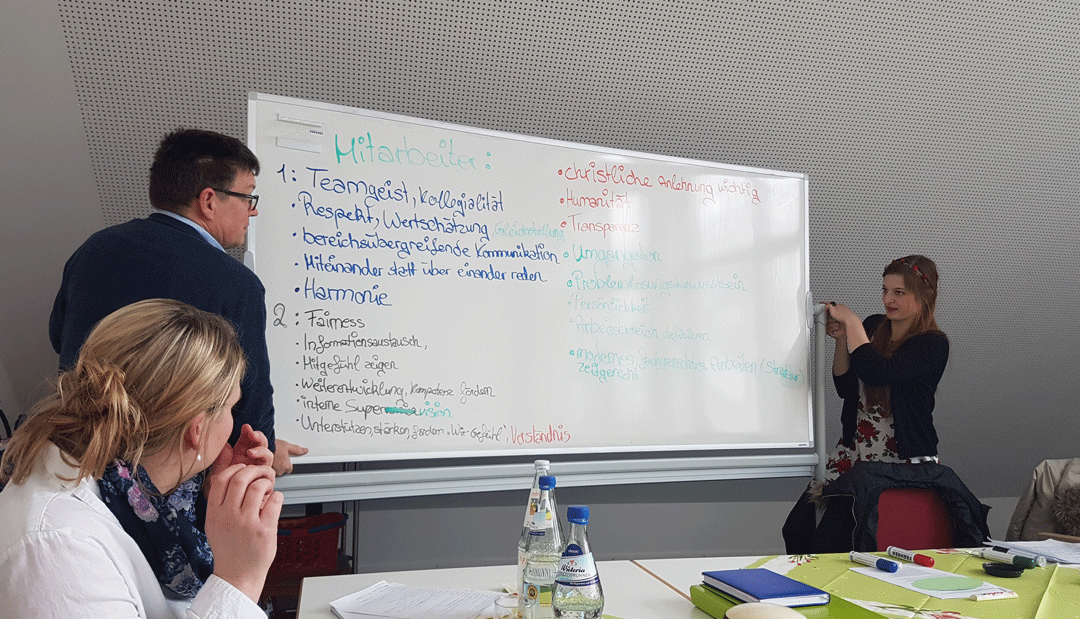 Mitarbeiter:
1: Teamgeist, Kollegialität
• Respekt, Wertschätzung, Gleichstellung
• bereichsübergreifende Kommunikation
• Miteinander statt über einander reden
• Harmonie
2: Fairness
• Informationsaustausch,
• Mitgefühl zeigen
• Weiterentwicklung, Kompetenz fördern
• interne Supervision
• Unterstützen, stärken, fördern „Wir-Gefühl", Verständnis
• christliche Anlehnung wichtig
• Humanität
• Transparenz
• Umgangston
• Problemlösungsbewusstsein
• Persönlichkeit
• Arbeitsbereich definieren
• modernes, Arbeiten (Struktur)
zeitgerecht